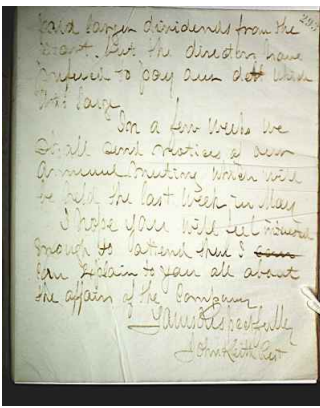 paid larger dividends from the
start, but the directors have
prefered to pay our debt which
was large.
In a few weeks we
shall send notices of our
Annual Meeting which will
be held the last week in May
I hope you will feel interested
enough to attend then I
can explain to you all about
the affairs of the Company.
Yours Respectfully
John Keith